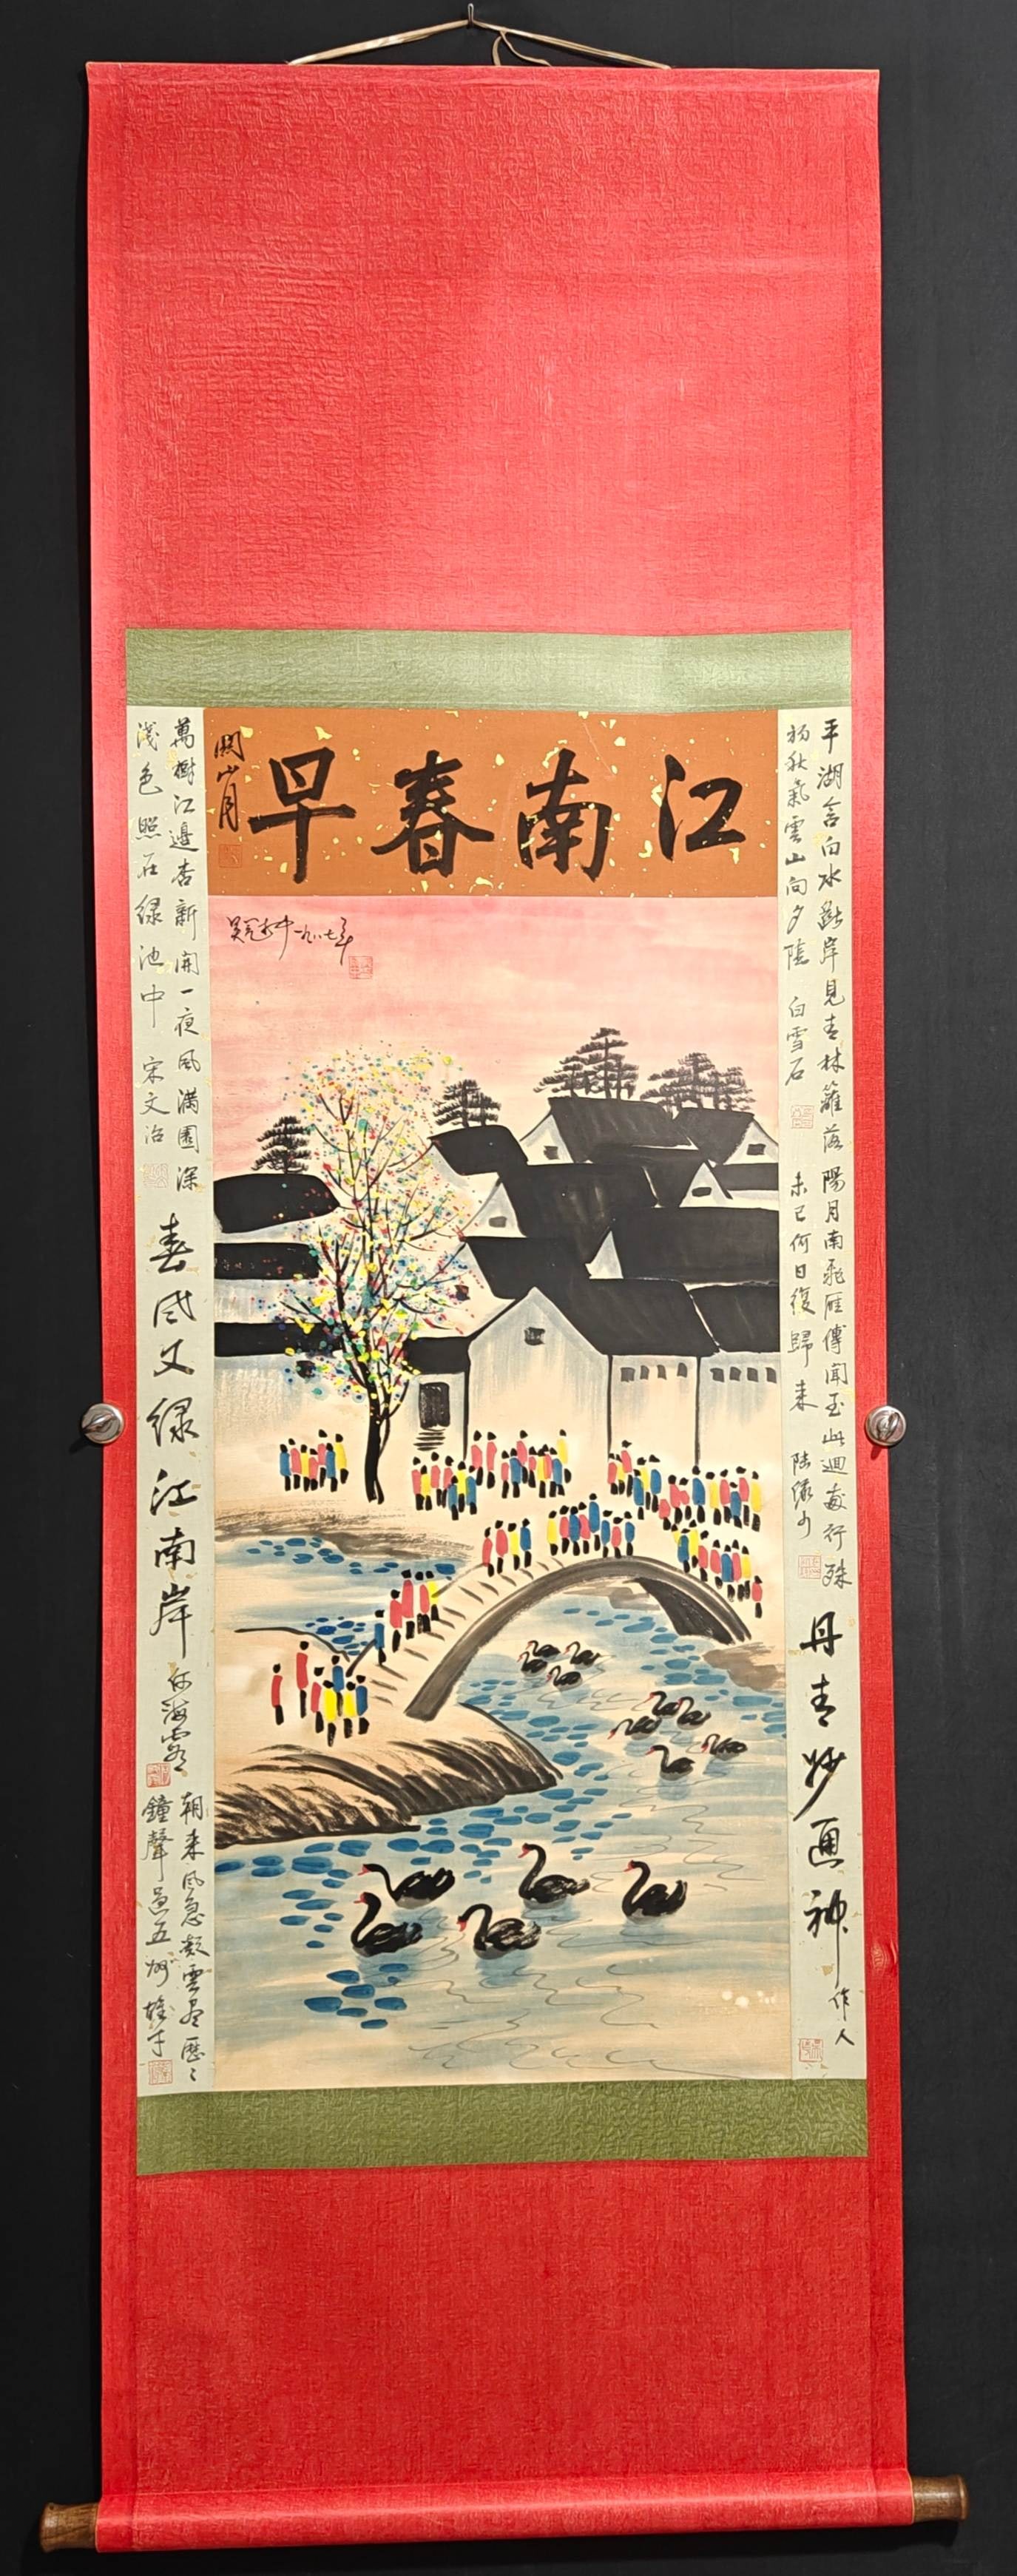 江南春早
關山月
吴冠中一九八七年
平湖含白水斷岸見青林籬落
初秋氣雲山向夕陰 白雪石
陽月南飛雁傳聞至此迴我行殊
未已何日復歸来 陸儼少
丹青妙通神
作人
萬樹江邊杏新開一夜風滿園深
淺色照在绿池中 宋文治
春风又绿江南岸
何海霞
朝来风急 雲尽歷々
鐘聲過五湖 雄才